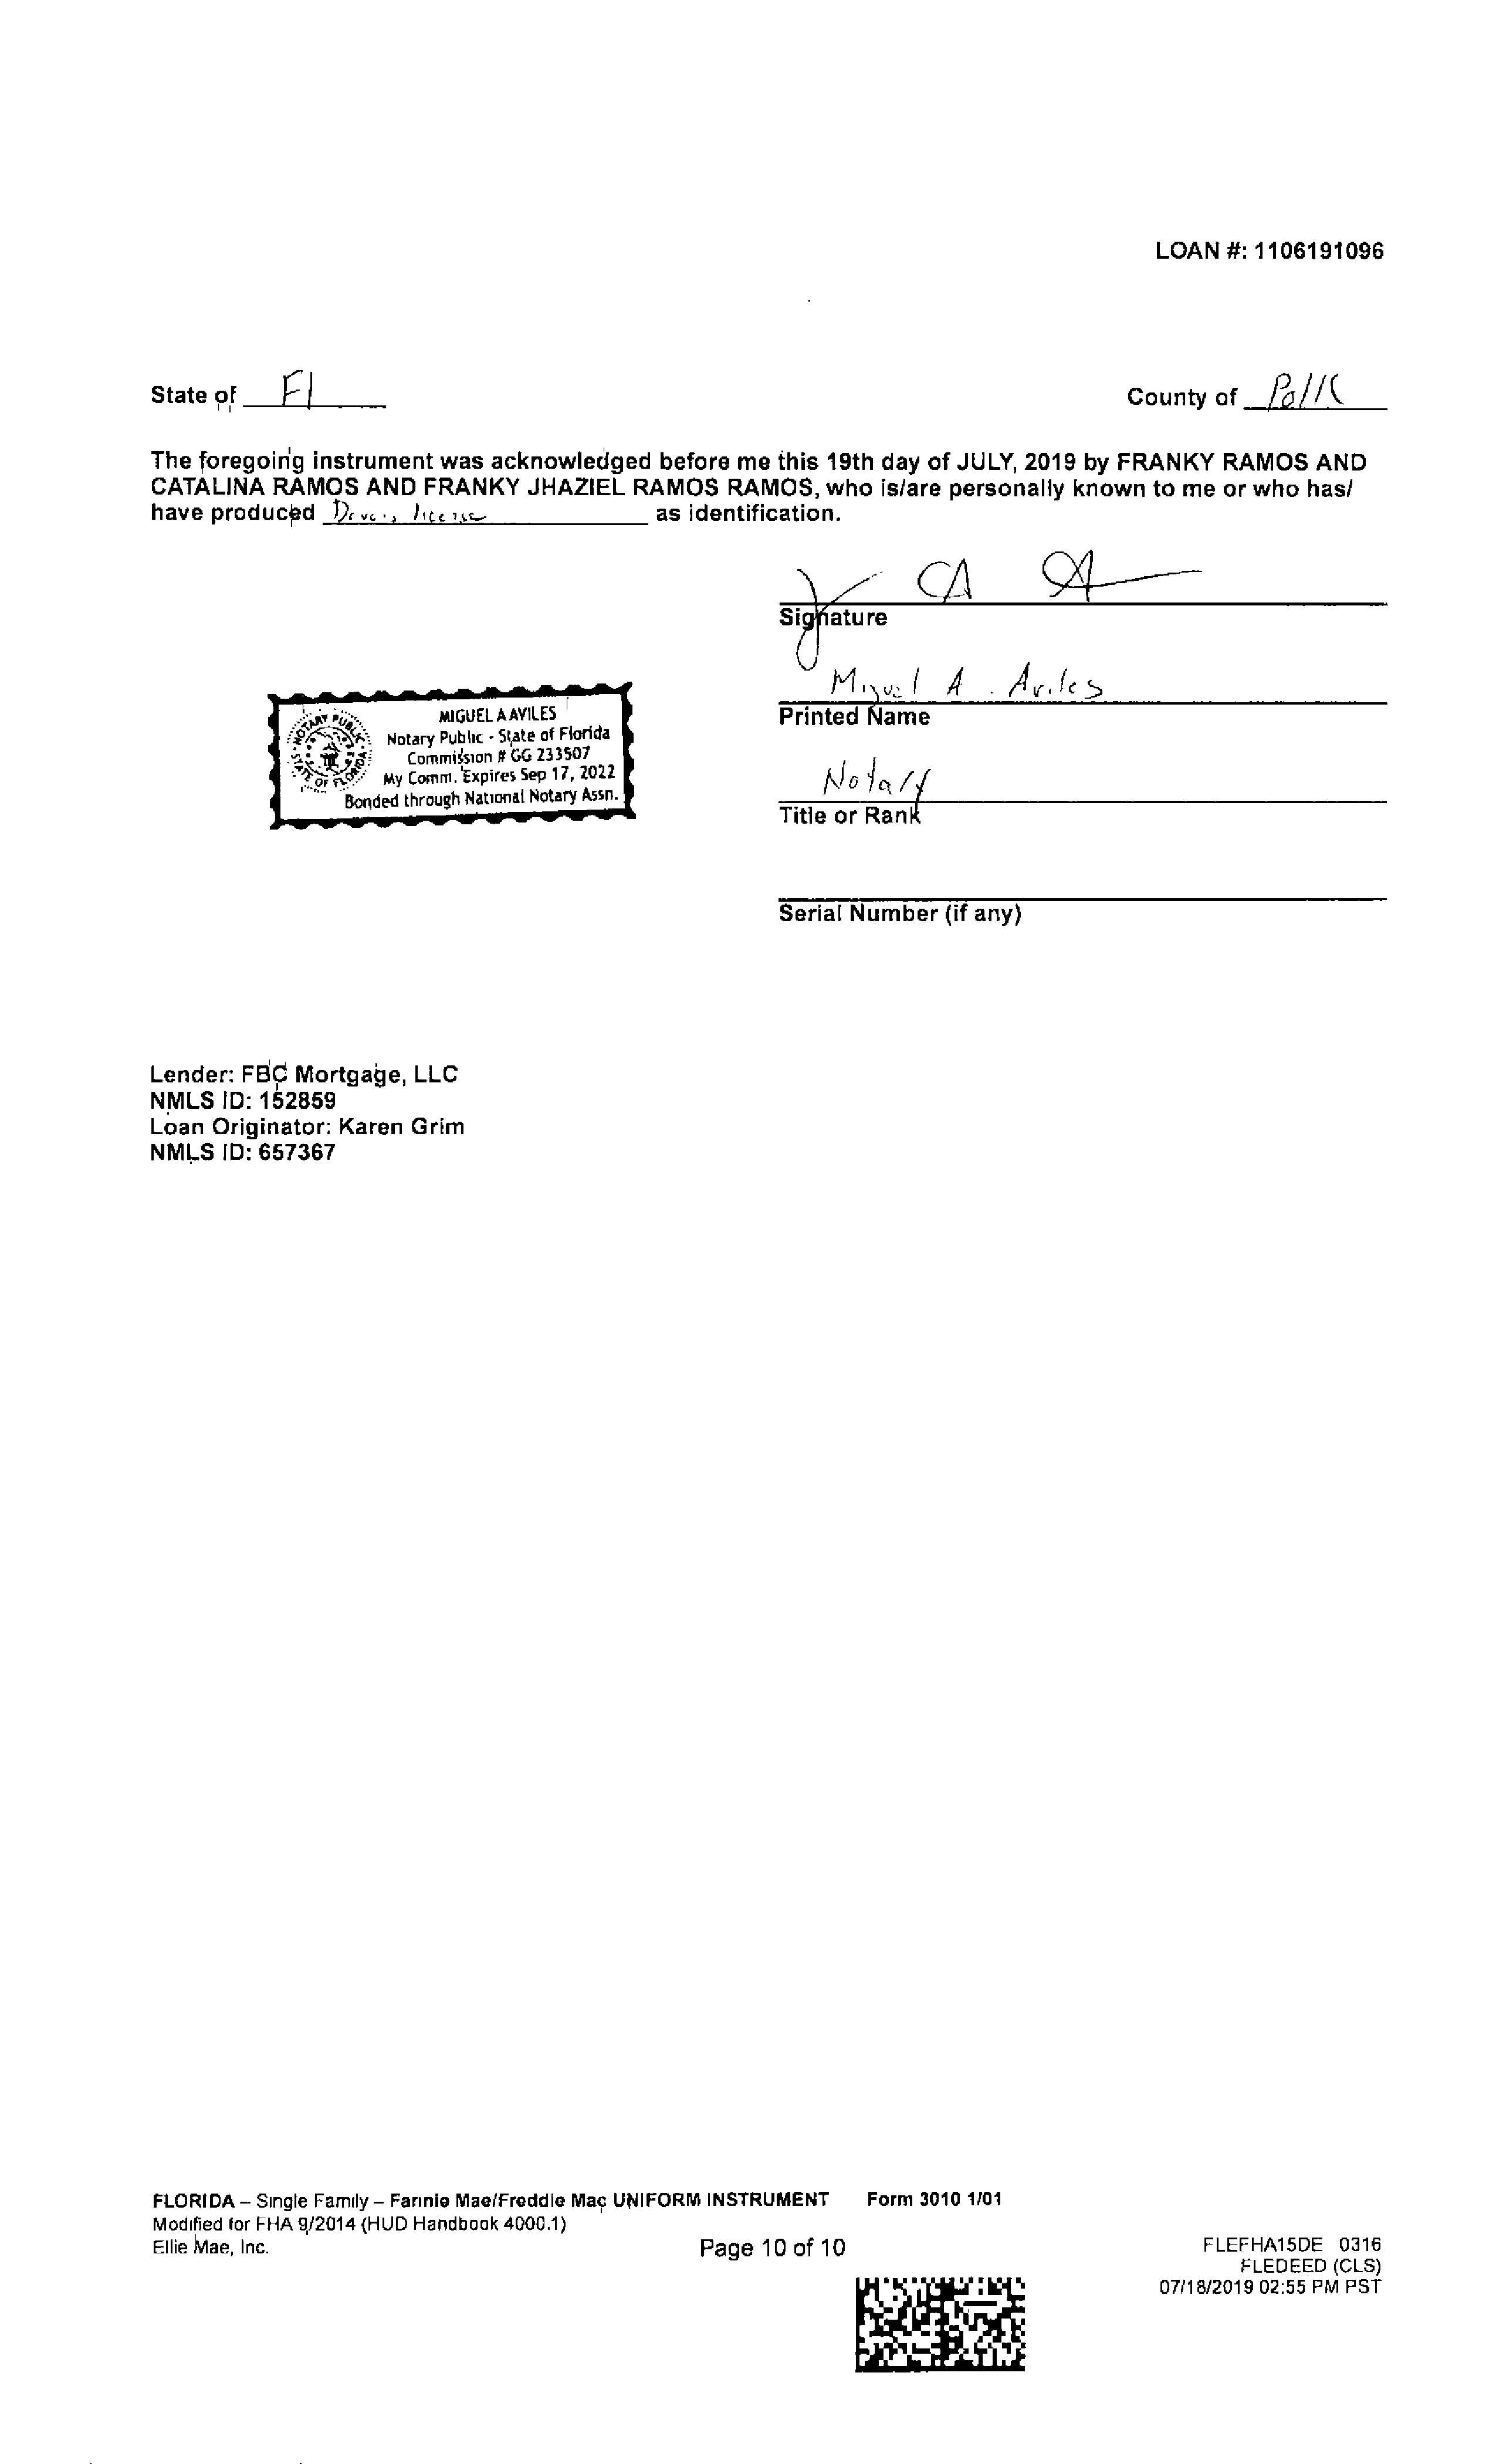 LOAN #: 1106191096
State of Fl County of Polk
The foregoing instrument was acknowledged before me this 19th day of JULY, 2019 by FRANKY RAMOS AND
CATALINA RAMOS AND FRANKY JHAZIEL RAMOS RAMOS, who is/are personally known to me or who has/
have produced Drivers license as identification.
Signature
Miguel A. Aviles
Printed Name
MIGUEL A AVILES
Notary Public - State of Florida
Commission # GG 233507
My Comm. Expires Sep 17, 2022
Bonded through National Notary Assn.
NOTARY PUBLIC
STATE OF FLORIDA
Notary
Title or Rank
Serial Number (if any)
Lender: FBC Mortgage, LLC
NMLS ID: 152859
Loan Originator: Karen Grim
NMLS ID: 657367
FLORIDA – Single Family – Fannie Mae/Freddie Mac UNIFORM INSTRUMENT Form 3010 1/01
Modified for FHA 9/2014 (HUD Handbook 4000.1)
Ellie Mae, Inc.
Page 10 of 10
FLEFHA15DE 0316
FLEDEED (CLS)
07/18/2019 02:55 PM PST